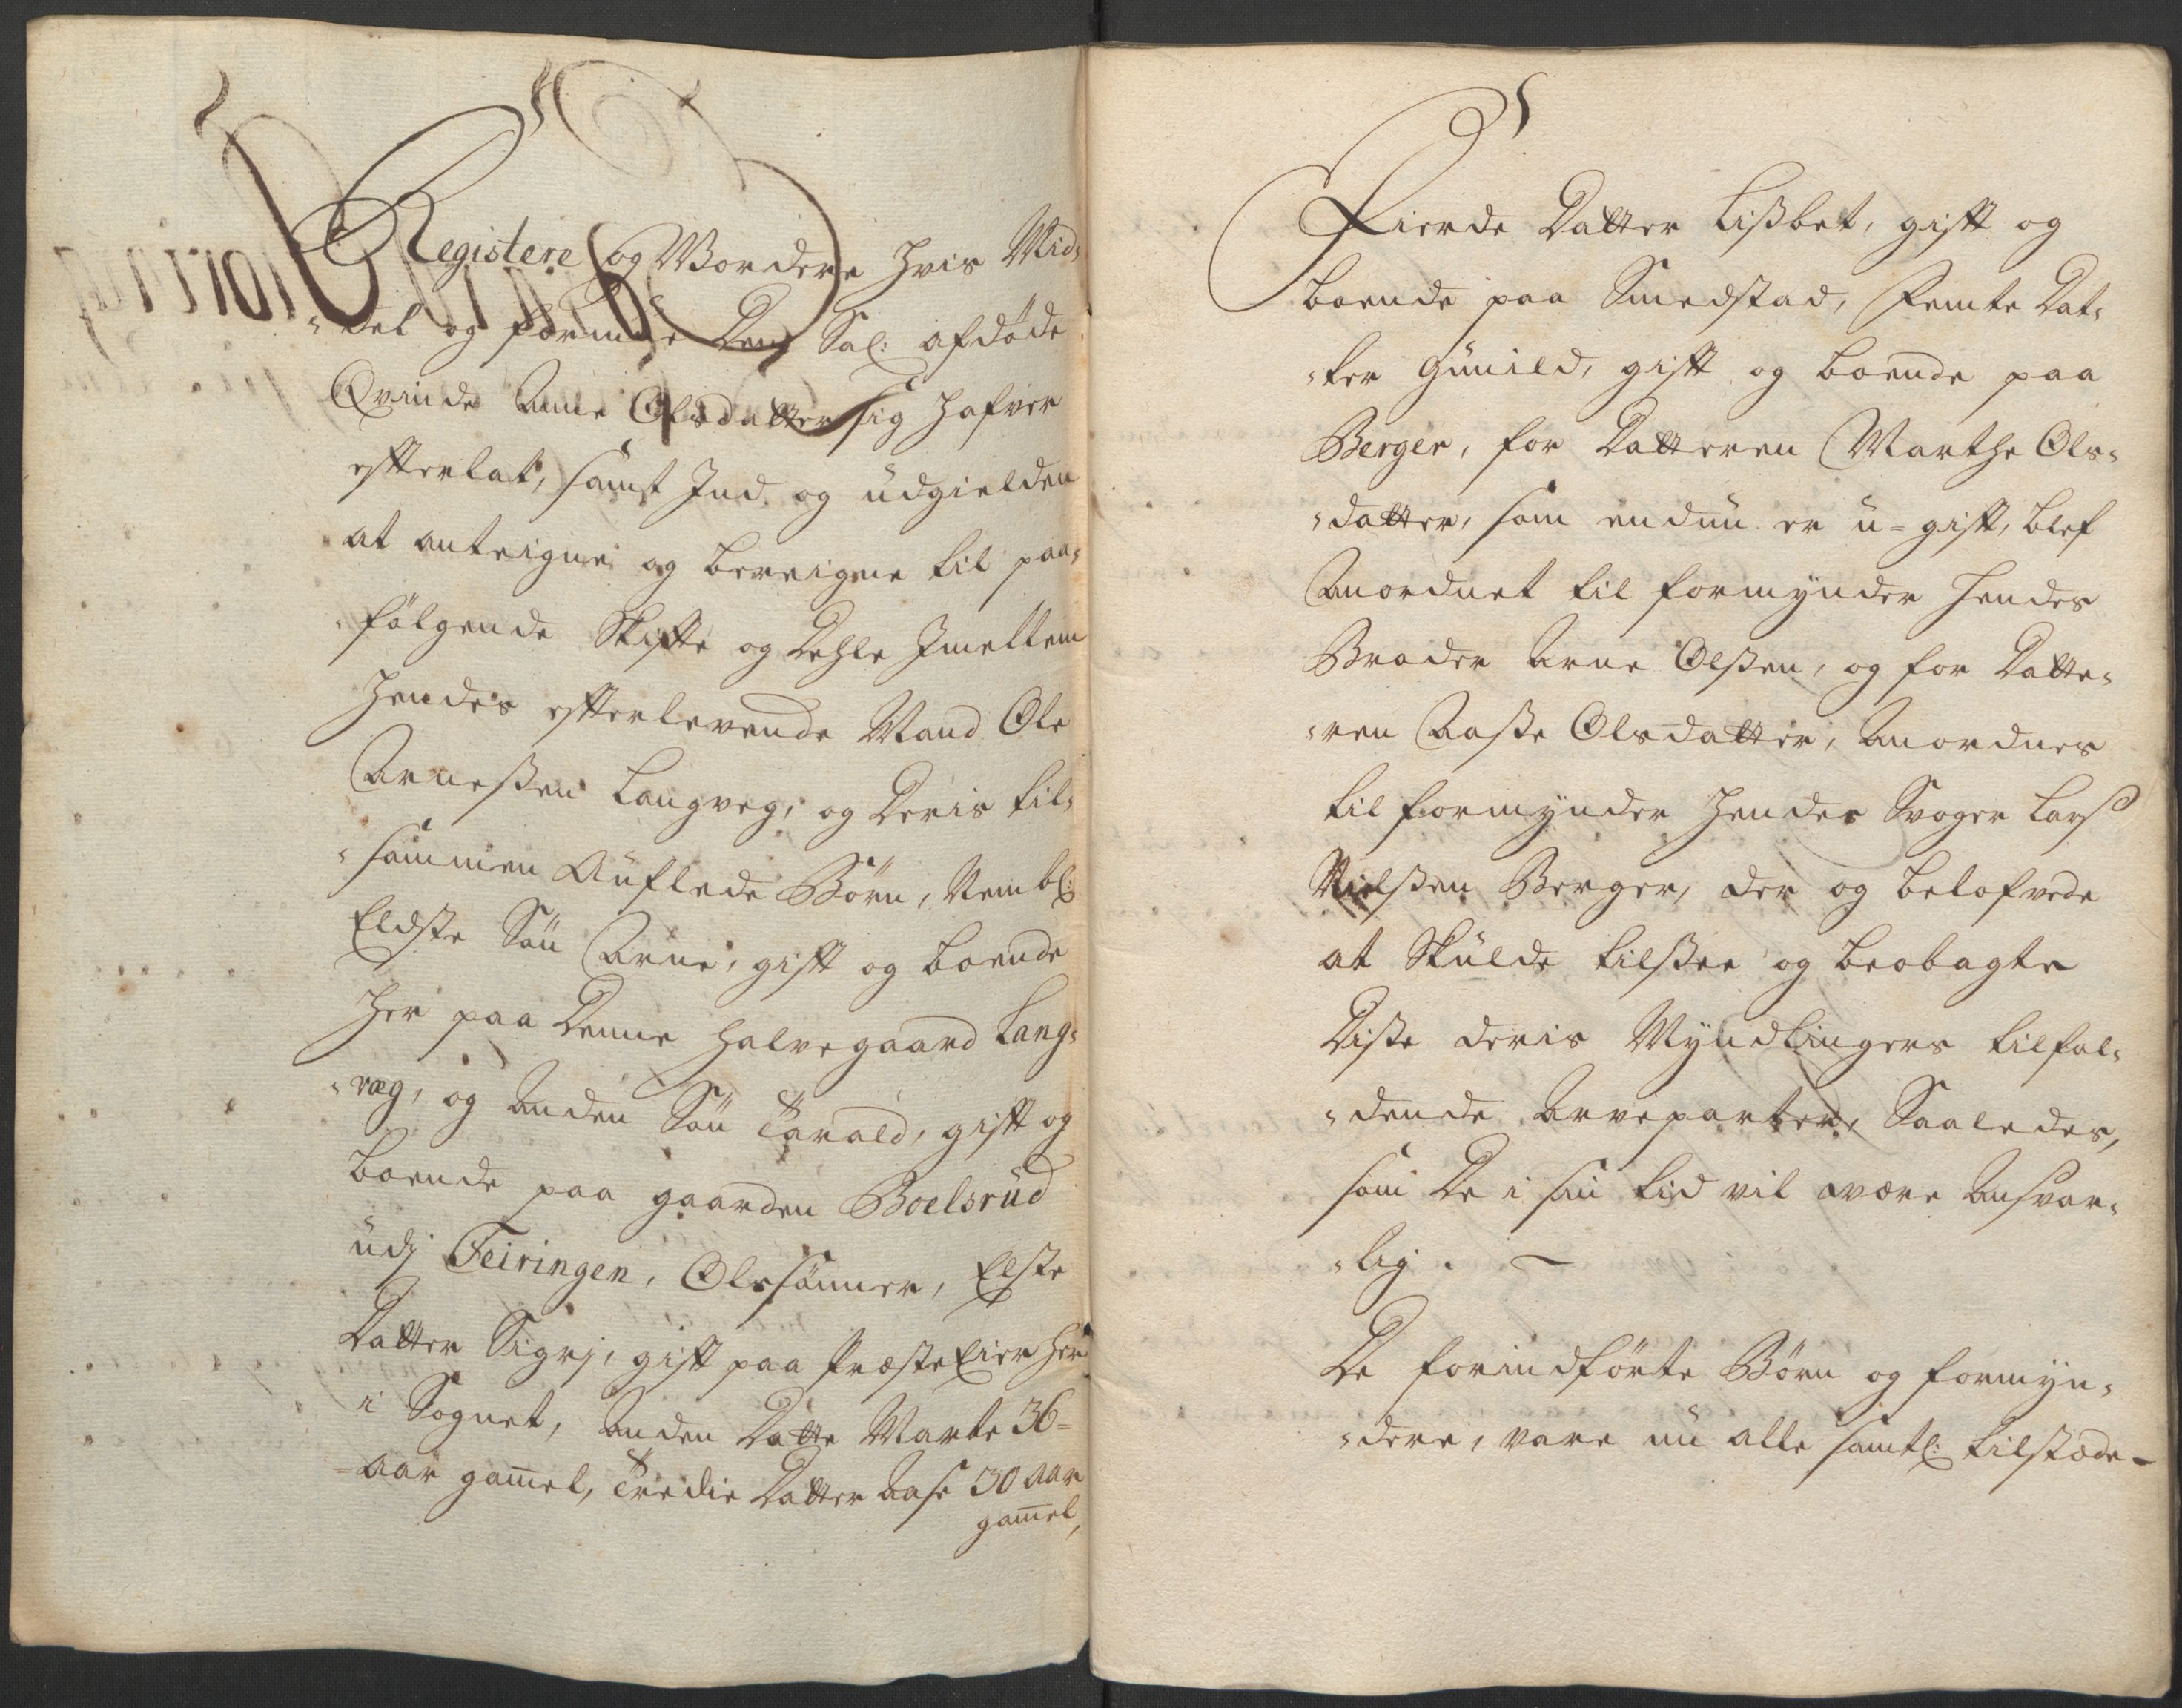 Registere og Wordere hvis Mid-
del og formue Den Sal: afdøde
Qvinde Anne Olsdatter sig hafver
efterlat, samt Ind og udgielden
at anteigne og bereigne til paa-
følgende Skifte og Dehle Imellem
hendes efterlevende Mand Ole
Arneßen Langveg, og Deris til-
sammen Auflede Børn, Nembl:
Eldste Søn Arne, gift og boende
her paa Denne halve gaard Lang-
væg, og Anden Søn Tarald, gift og
boende paa gaarden Boelsrud
udj Feiringen, Olssønner, Elste
Datter Sigrj, gift paa Præste Eier her
i Sognet, Anden Datte Marte 36=
=aar gam̄el, Tredie Datter Aase 30 aar
gam̄el,
Fierde Datter Lißbet, gift og
boende paa Smedstad, Femte Dat-
ter Gunild, gift og boende paa
Berger, for Datteren Marthe Ols-
datter, som endnu er u=gift, blef
Anordnet til formynder hendes
Broder Arne Olßen, og for Datte-
ren Aaße Olsdatter, Anordnes
til formynder hendes Svoger Larß
Nielßen Berger, der og belofvede
at Skulde tilßee og beobagte
Diße deris Myndlingers tilfal-
dende Arveparter, Saaledes,
som De i sin tid vil være Ansvar-
lig. —
De forindførte Børn og formyn-
dere, vare nu alle samtl: tilstæde-